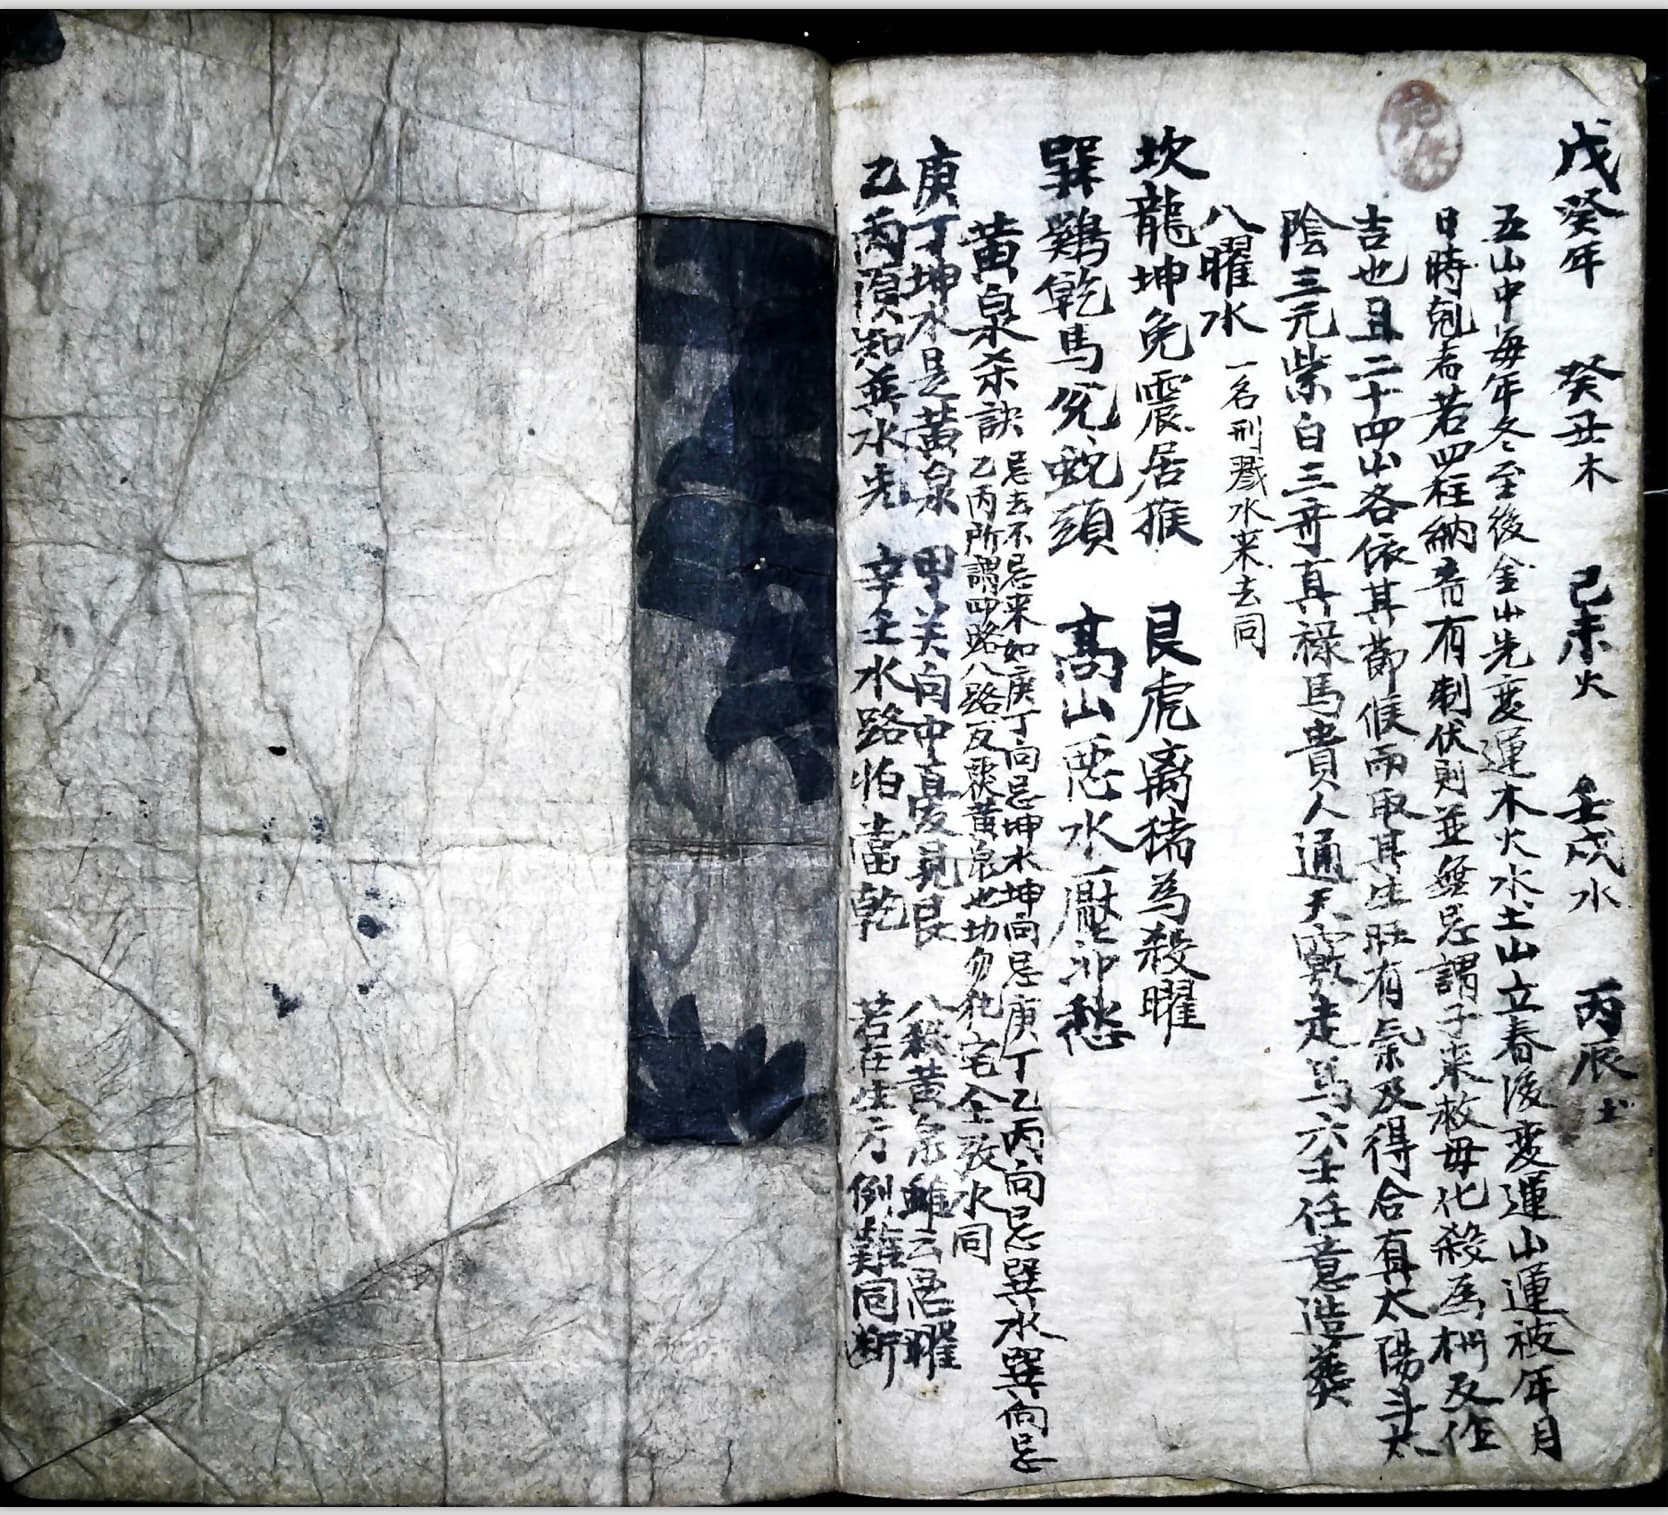 戊癸年 癸丑木 己未火 壬戌水 丙辰土
五山中每年冬至後金山先变運木火水土山立春後变運山運被年月
日時剋者若四柱納音有制伏則並無忌謂子来救母化殺為权反作
吉也且二十四山各依其節候而取其生旺有氣及得合有太陽斗太
陰三元紫白三奇真祿馬貴人通天竅走馬六壬任意造葬
八曜水 一名刑戮水来去同
坎龍坤兔震居猴 艮虎离猪為殺曜
巽鷄乾馬兌蛇頭 髙山惡水一壓即愁
黄泉杀訣 忌去不忌来如庚丁向忌坤水坤向忌庚丁乙丙向忌巽水巽向忌
乙丙所謂四路八路反覆黄泉也切勿犯宅仝放水同
庚丁坤水是黄泉 甲癸向中直憂見艮 八殺黄泉雖云惡曜
乙丙須知巽水先 辛壬水路怕當乾 若在生方例難同断